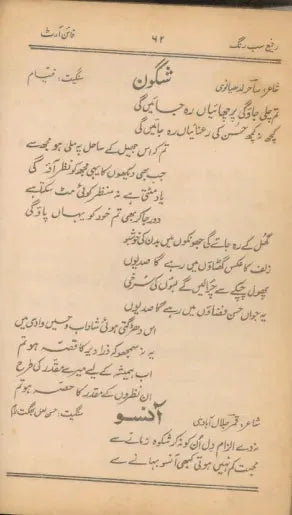 رفیع سب رنگ ۶۲ فائن آرٹ
شاعر: ساحر لدھیانوی شگون سنگیت: خیام
تم چلی جاؤ گی پرچھائیاں رہ جائیں گی
کچھ نہ کچھ حسن کی رعنائیاں رہ جائیں گی
تم کہ اس جھیل کے ساحل پہ ملی ہو مجھ سے
جب بھی دیکھوں گا یہیں مجھ کو نظر آؤ گی
یاد مٹتی ہے نہ منظر کوئی مٹ سکتا ہے
دور جا کر بھی تم خود کو یہاں پاؤ گی
گھل کے رہ جائے گی جھونکوں میں بدن کی خوشبو
زلف کا عکس گھٹاؤں میں رہے گا صدیوں
پھول چپکے سے چرا لیں گے لبوں کی سرخی
یہ جواں حسن فضاؤں میں رہے گا صدیوں
اس دھڑکتی ہوئی شاداب و حسیں وادی میں
یہ نہ سمجھو کہ ذرا دیر کا قصہ ہو تم
اب ہمیشہ کے لیے میرے مقدر کی طرح
ان نظاروں کے مقدر کا حصہ ہو تم
شاعر: قمر جلال آبادی آنسو سنگیت:
نہ دے الزام دل ان کو نہ کر شکوہ زمانے سے
محبت کم نہیں ہوتی کبھی آنسو بہانے سے